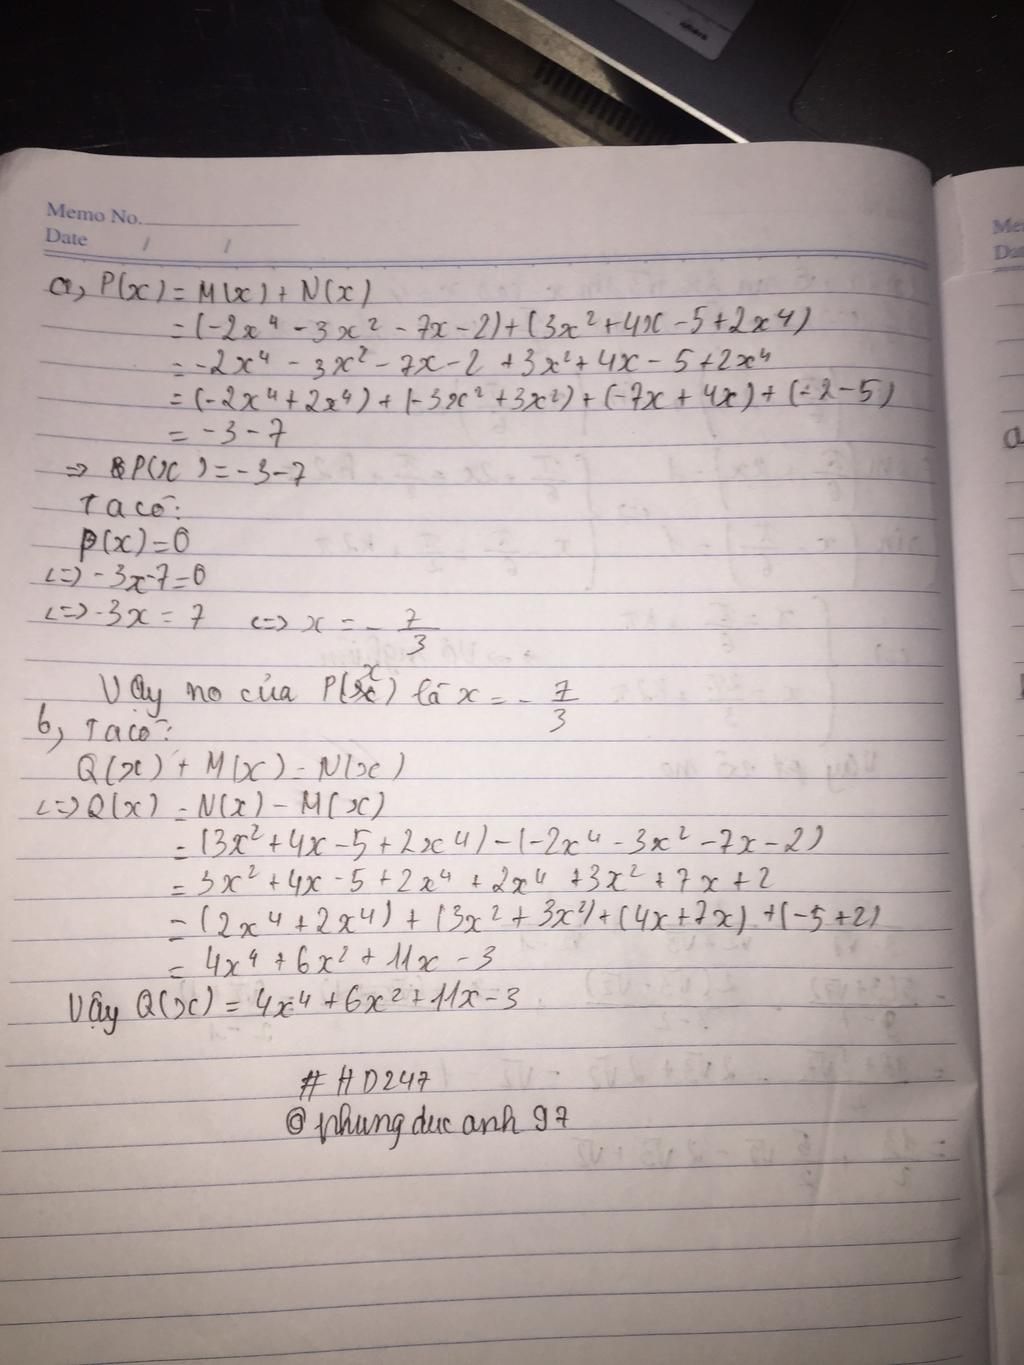 Memo No.
Date / /
a, P(x) = M(x) + N(x)
= (-2x⁴ - 3x² - 7x - 2) + (3x² + 4x - 5 + 2x⁴)
= -2x⁴ - 3x² - 7x - 2 + 3x² + 4x - 5 + 2x⁴
= (-2x⁴ + 2x⁴) + (-3x² + 3x²) + (-7x + 4x) + (-2 - 5)
= -3 - 7
=> P(x) = -3 - 7
Ta có:
P(x) = 0
<=> -3x - 7 = 0
<=> -3x = 7 <=> x = -7/3
Vậy no của P(x) là x = -7/3
b, Ta có:
Q(x) + M(x) = N(x)
<=> Q(x) = N(x) - M(x)
= (3x² + 4x - 5 + 2x⁴) - (-2x⁴ - 3x² - 7x - 2)
= 3x² + 4x - 5 + 2x⁴ + 2x⁴ + 3x² + 7x + 2
= (2x⁴ + 2x⁴) + (3x² + 3x²) + (4x + 7x) + (-5 + 2)
= 4x⁴ + 6x² + 11x - 3
Vậy Q(x) = 4x⁴ + 6x² + 11x - 3
# HD247
@phungducanh97